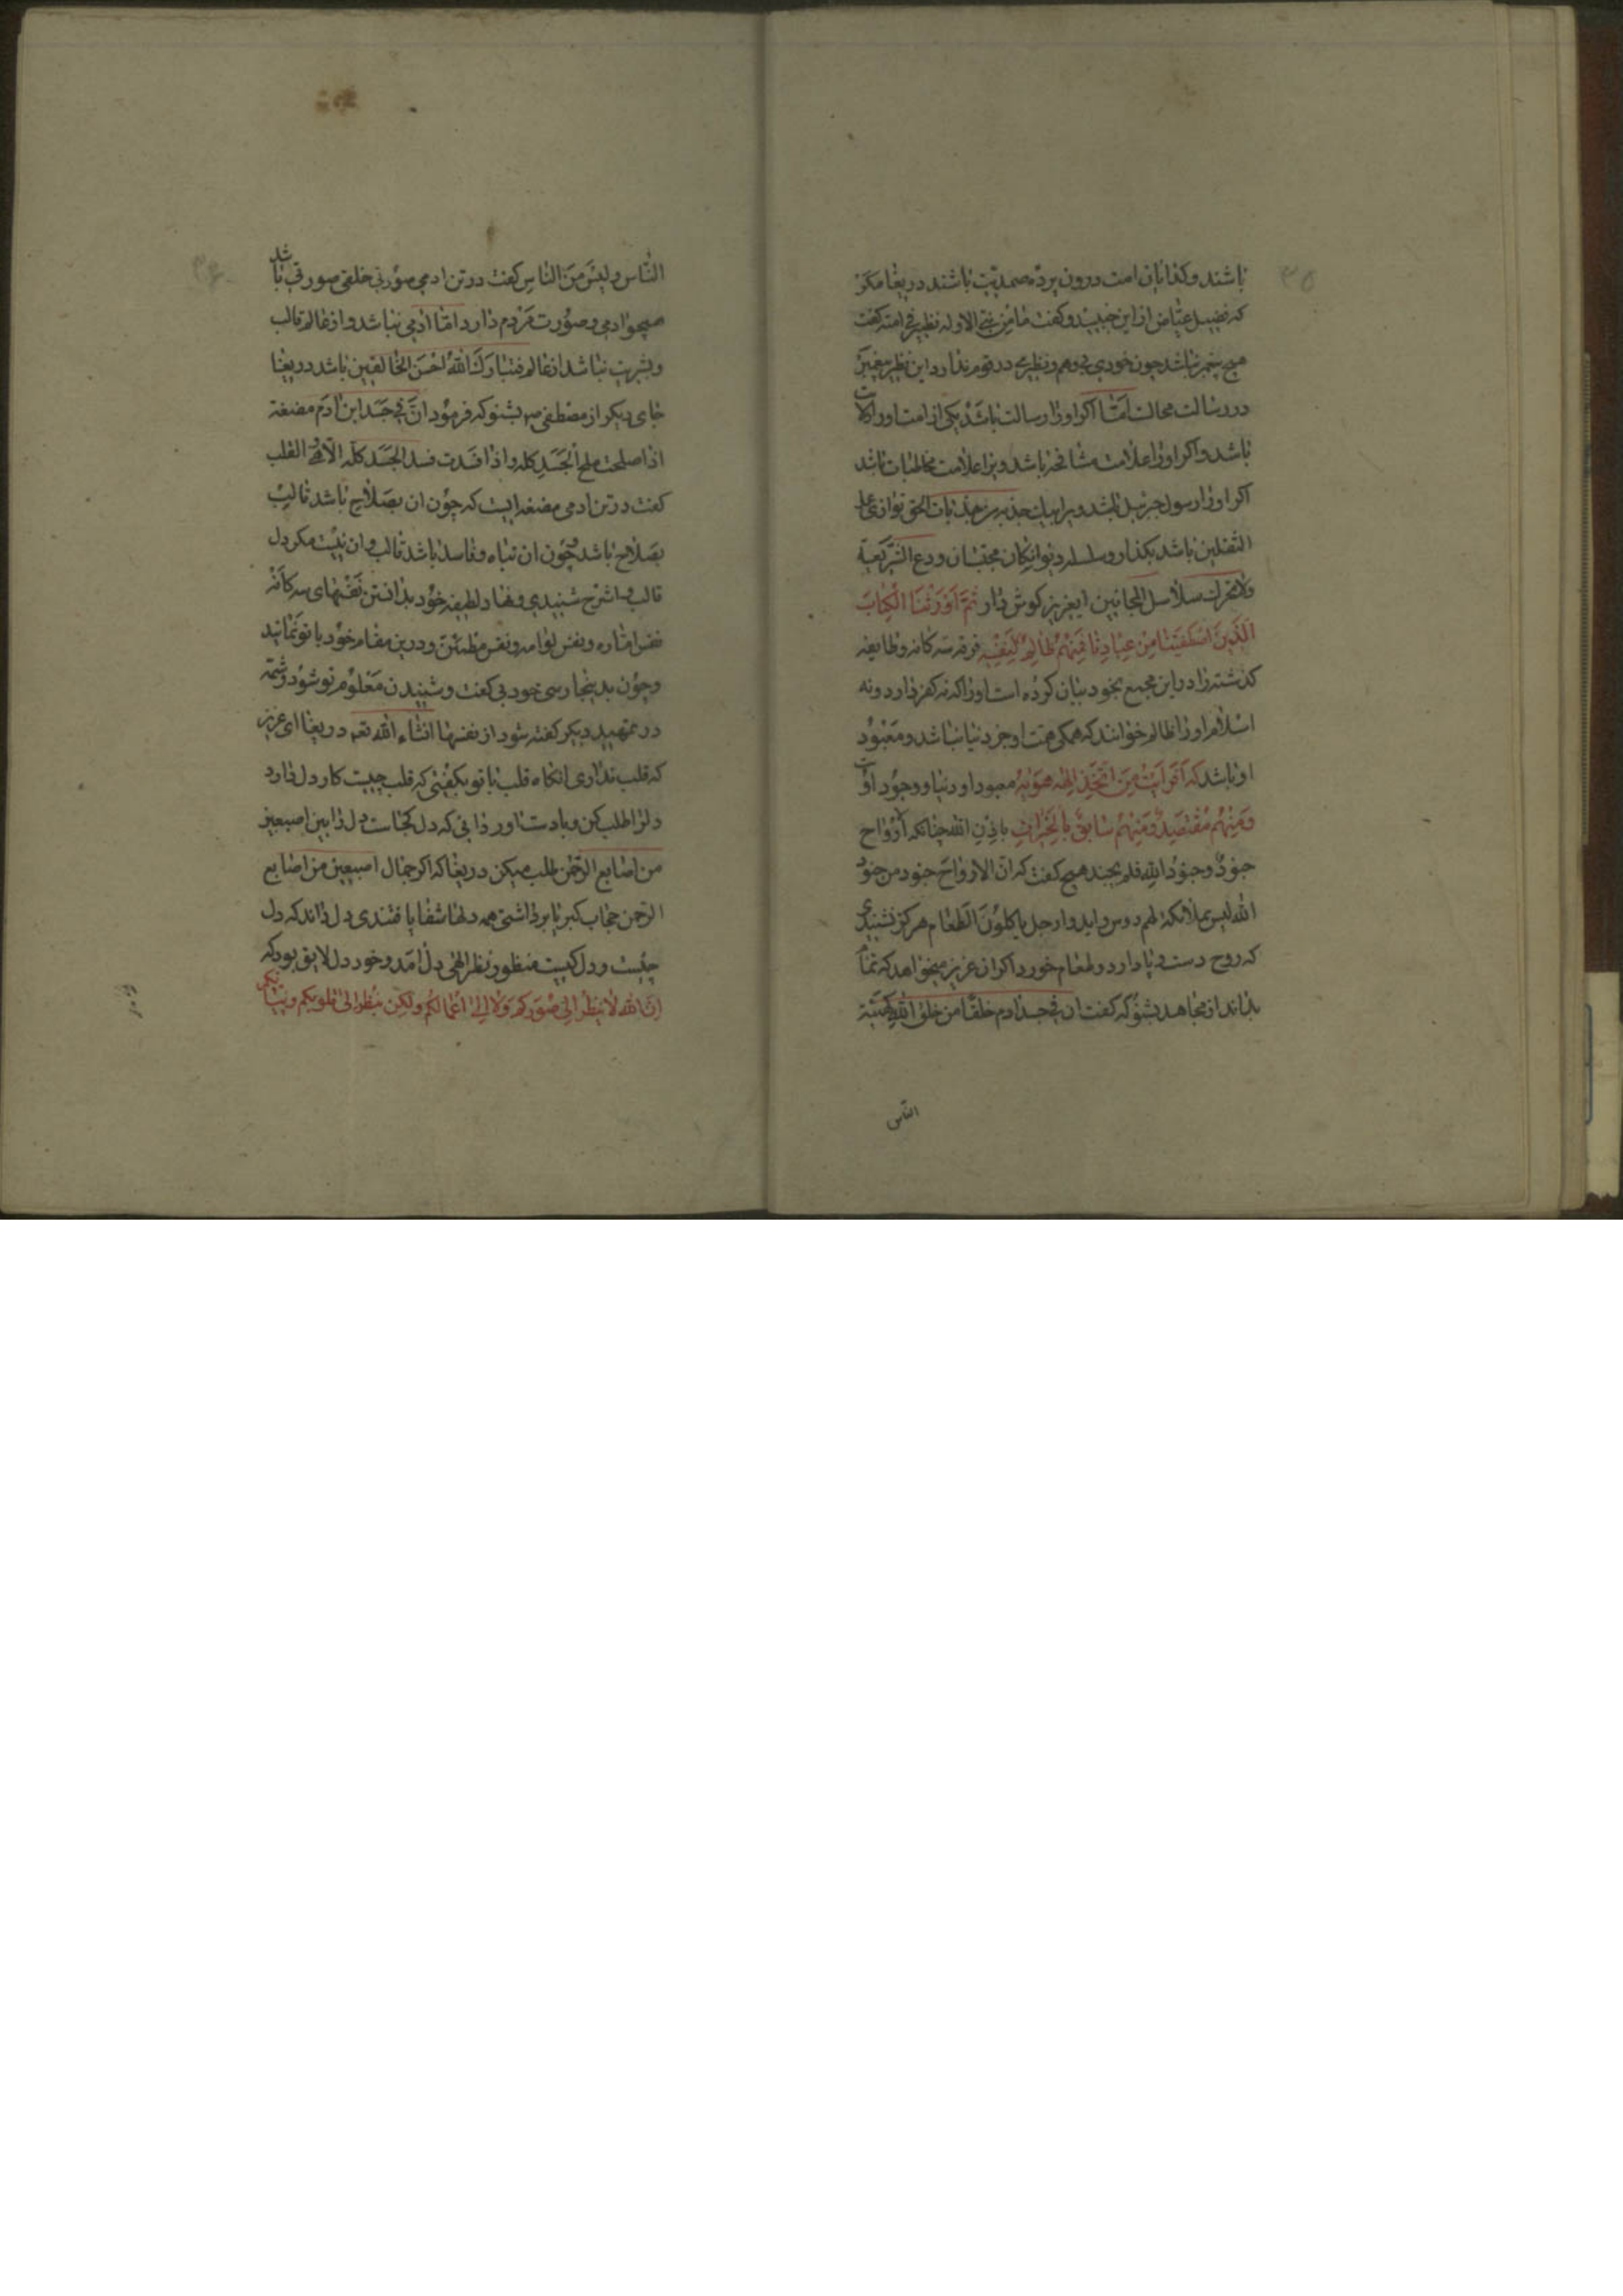 باشند و کدایان امت درون پرده صمدیت باشند دریغا مکر
که فضیل عیاض از این خبیند و کفت ما من نبی الا وله نظیر فی امته کفت
هیچ پیغمبر نباشد چون خودی بی وهم و نظیری در قوم ندارد این نظیر پیغمبر
در رسالت محالست امّا اکر او را رسالت باشد یکی از امت او را ولایت
باشد و اکر او را علامت مشافحه باشد ویرا علامت مخاطبات باشد
اکر او را رسول جبرئیل باشد ویرا پیک جذبه من جذبات الحق توازی عمل
الثقلین باشد بکذار و سلسله دیوانکان مجنبان ودع الشریعة
ولا تحرک سلاسل المجانین ایعزیز کوش دار ثُمَّ اَوْرَثْنَا الْکِتابَ
الَّذِینَ اصْطَفَیْنا مِنْ عِبادِنا فَمِنْهُمْ ظالِمٌ لِنَفْسِهِ فرقه سه کانه و طایفه
کذشته را در این مجمع بخود بیان کرده است او را که نه کفر دارد و نه
اسلام او را ظالم خوانند که همکی همت او جز دنیا نباشد و معبود
او باشد که اَفَرَاَیْتَ مَنِ اتَّخَذَ اِلهَهُ هَویهُ معبود او دنیا و وجود اوست
وَمِنْهُمْ مُقْتَصِدٌ وَمِنْهُمْ سابِقٌ بِالْخَیْراتِ باذن الله چنانکه ارواح
جنود وجنود الله فلم یجند هیچ کفت که ان الارواح جنود من جنود
الله لیس بملائکة لهم روس واید وارجل یاکلون الطعام هرکز نشنیدی
که روح دست و پا دارد و طعام خورد اکر ان عزیز میخواهد که تمام
بداند از مجاهد بشنو که کفت ان فی جسد ادم خلقا من خلق الله کهیئة
الناس
الناس ولیس من الناس کفت در تن ادمی صورتی خلقی صورتی باشد
همچو ادمی و صورت مردم دارد امّا ادمی نباشد و از عالم قالب
و بشریت نباشد از عالم فتبارک الله احسن الخالقین باشد دریغا
جای دیکر از مصطفی ص بشنو که فرمود انّ فی جسد ابن ادم مضغة
اذا صلحت صلح الجسد کله واذا فسدت فسد الجسد کله الا وهی القلب
کفت در تن ادمی مضغه ایست که چون ان بصلاح باشد قالب
بصلاح باشد و چون ان تباه و فاسد باشد قالب و ان نیست مکر دل
قالب را شرح شنیدی و نهاد لطیفه خود بدانستن نفسهای سه کانه
نفس اماره و نفس لوامه و نفس مطمئن و درین مقام خود با تو نمانید
و چون بدینجا رسی خود بی کفت و شنیدن معلوم تو شود و شمه
در تمهید دیکر کفته شود از نفسها انشاء الله تعه دریغا ای عزیز
که قلب نداری انکاه قلب با تو بکفتی که قلب چیست کار دل دارد
دلرا طلب کن و بادست اور دانی که دل کجاست دل را بین اصبعین
من اصابع الرحمن طلب میکن دریغا که اکر جمال اصبعین من اصابع
الرحمن حجاب کبریا برداشتی همه دلها شفا یافتندی دل داند که دل
چیست و دل کیست منظور نظر الهی دل امد و خود دل لایق بود که
ان الله لا ینظر الی صورکم ولا الی اعمالکم ولکن ینظر الی قلوبکم ونیاتکم